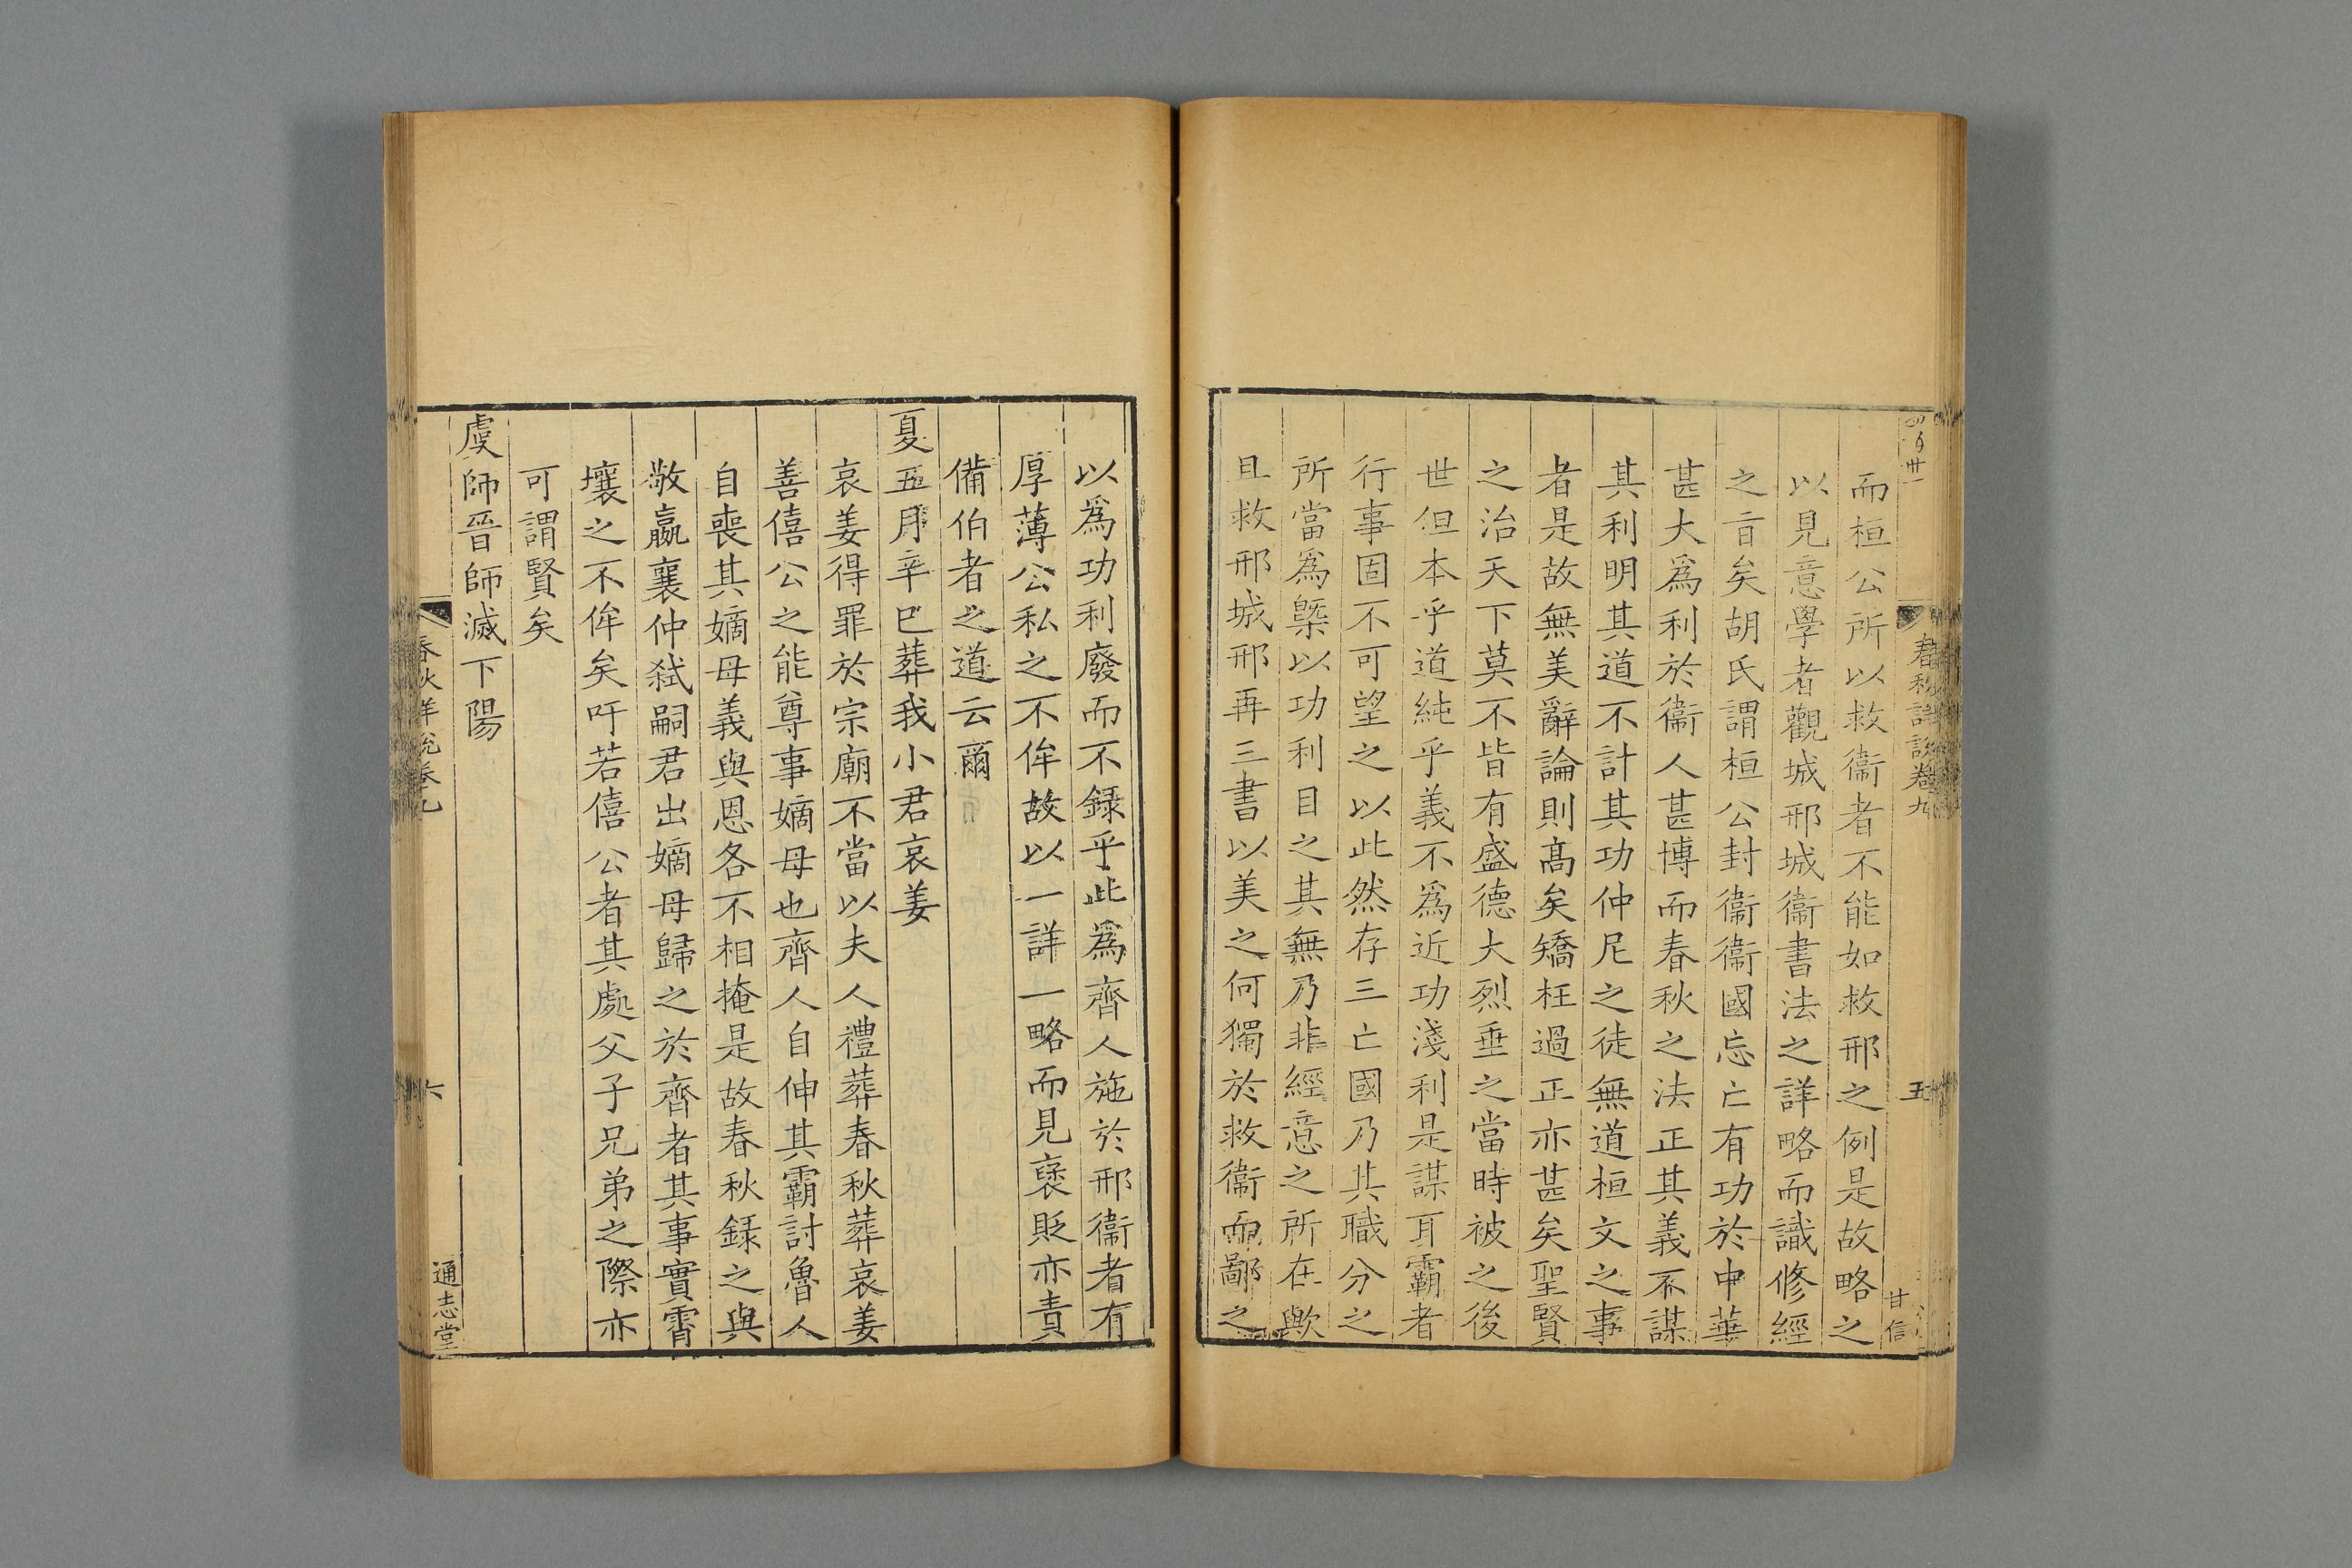 春秋詳說卷九
五
甘信
而桓公所以救衞者不能如救邢之例是故略之
以見意學者觀城邢城衞書法之詳略而識修經
之㫖矣胡氏謂桓公封衞衞國忘亡有功於中華
甚大爲利於衞人甚博而春秋之法正其義不謀
其利明其道不計其功仲尼之徒無道桓文之事
者是故無美辭論則髙矣矯枉過正亦甚矣聖賢
之治天下莫不皆有盛德大烈垂之當時被之後
世但本乎道純乎義不爲近功淺利是謀耳霸者
行事固不可望之以此然存三亡國乃其職分之
所當爲槩以功利目之其無乃非經意之所在歟
且救邢城邢再三書以美之何獨於救衞而鄙之
以爲功利廢而不録乎此爲齊人施於邢衞者有
厚薄公私之不侔故以一詳一略而見襃貶亦責
備伯者之道云爾
夏五月辛巳葬我小君哀姜
哀姜得罪於宗廟不當以夫人禮葬春秋葬哀姜
善僖公之能尊事嫡母也齊人自伸其霸討魯人
自喪其嫡母義與恩各不相掩是故春秋録之與
敬嬴襄仲弑嗣君出嫡母歸之於齊者其事實霄
壤之不侔矣吁若僖公者其處父子兄弟之際亦
可謂賢矣
虞師晉師滅下陽
春秋詳說卷九
六
通志堂